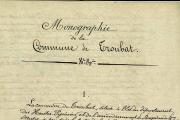 Monographie
de la
Commune de Troubat.
I.
La commune de Troubat, située à l'Est du département
des Hautes Pyrénées et de l'arrondissement de Bagnères de